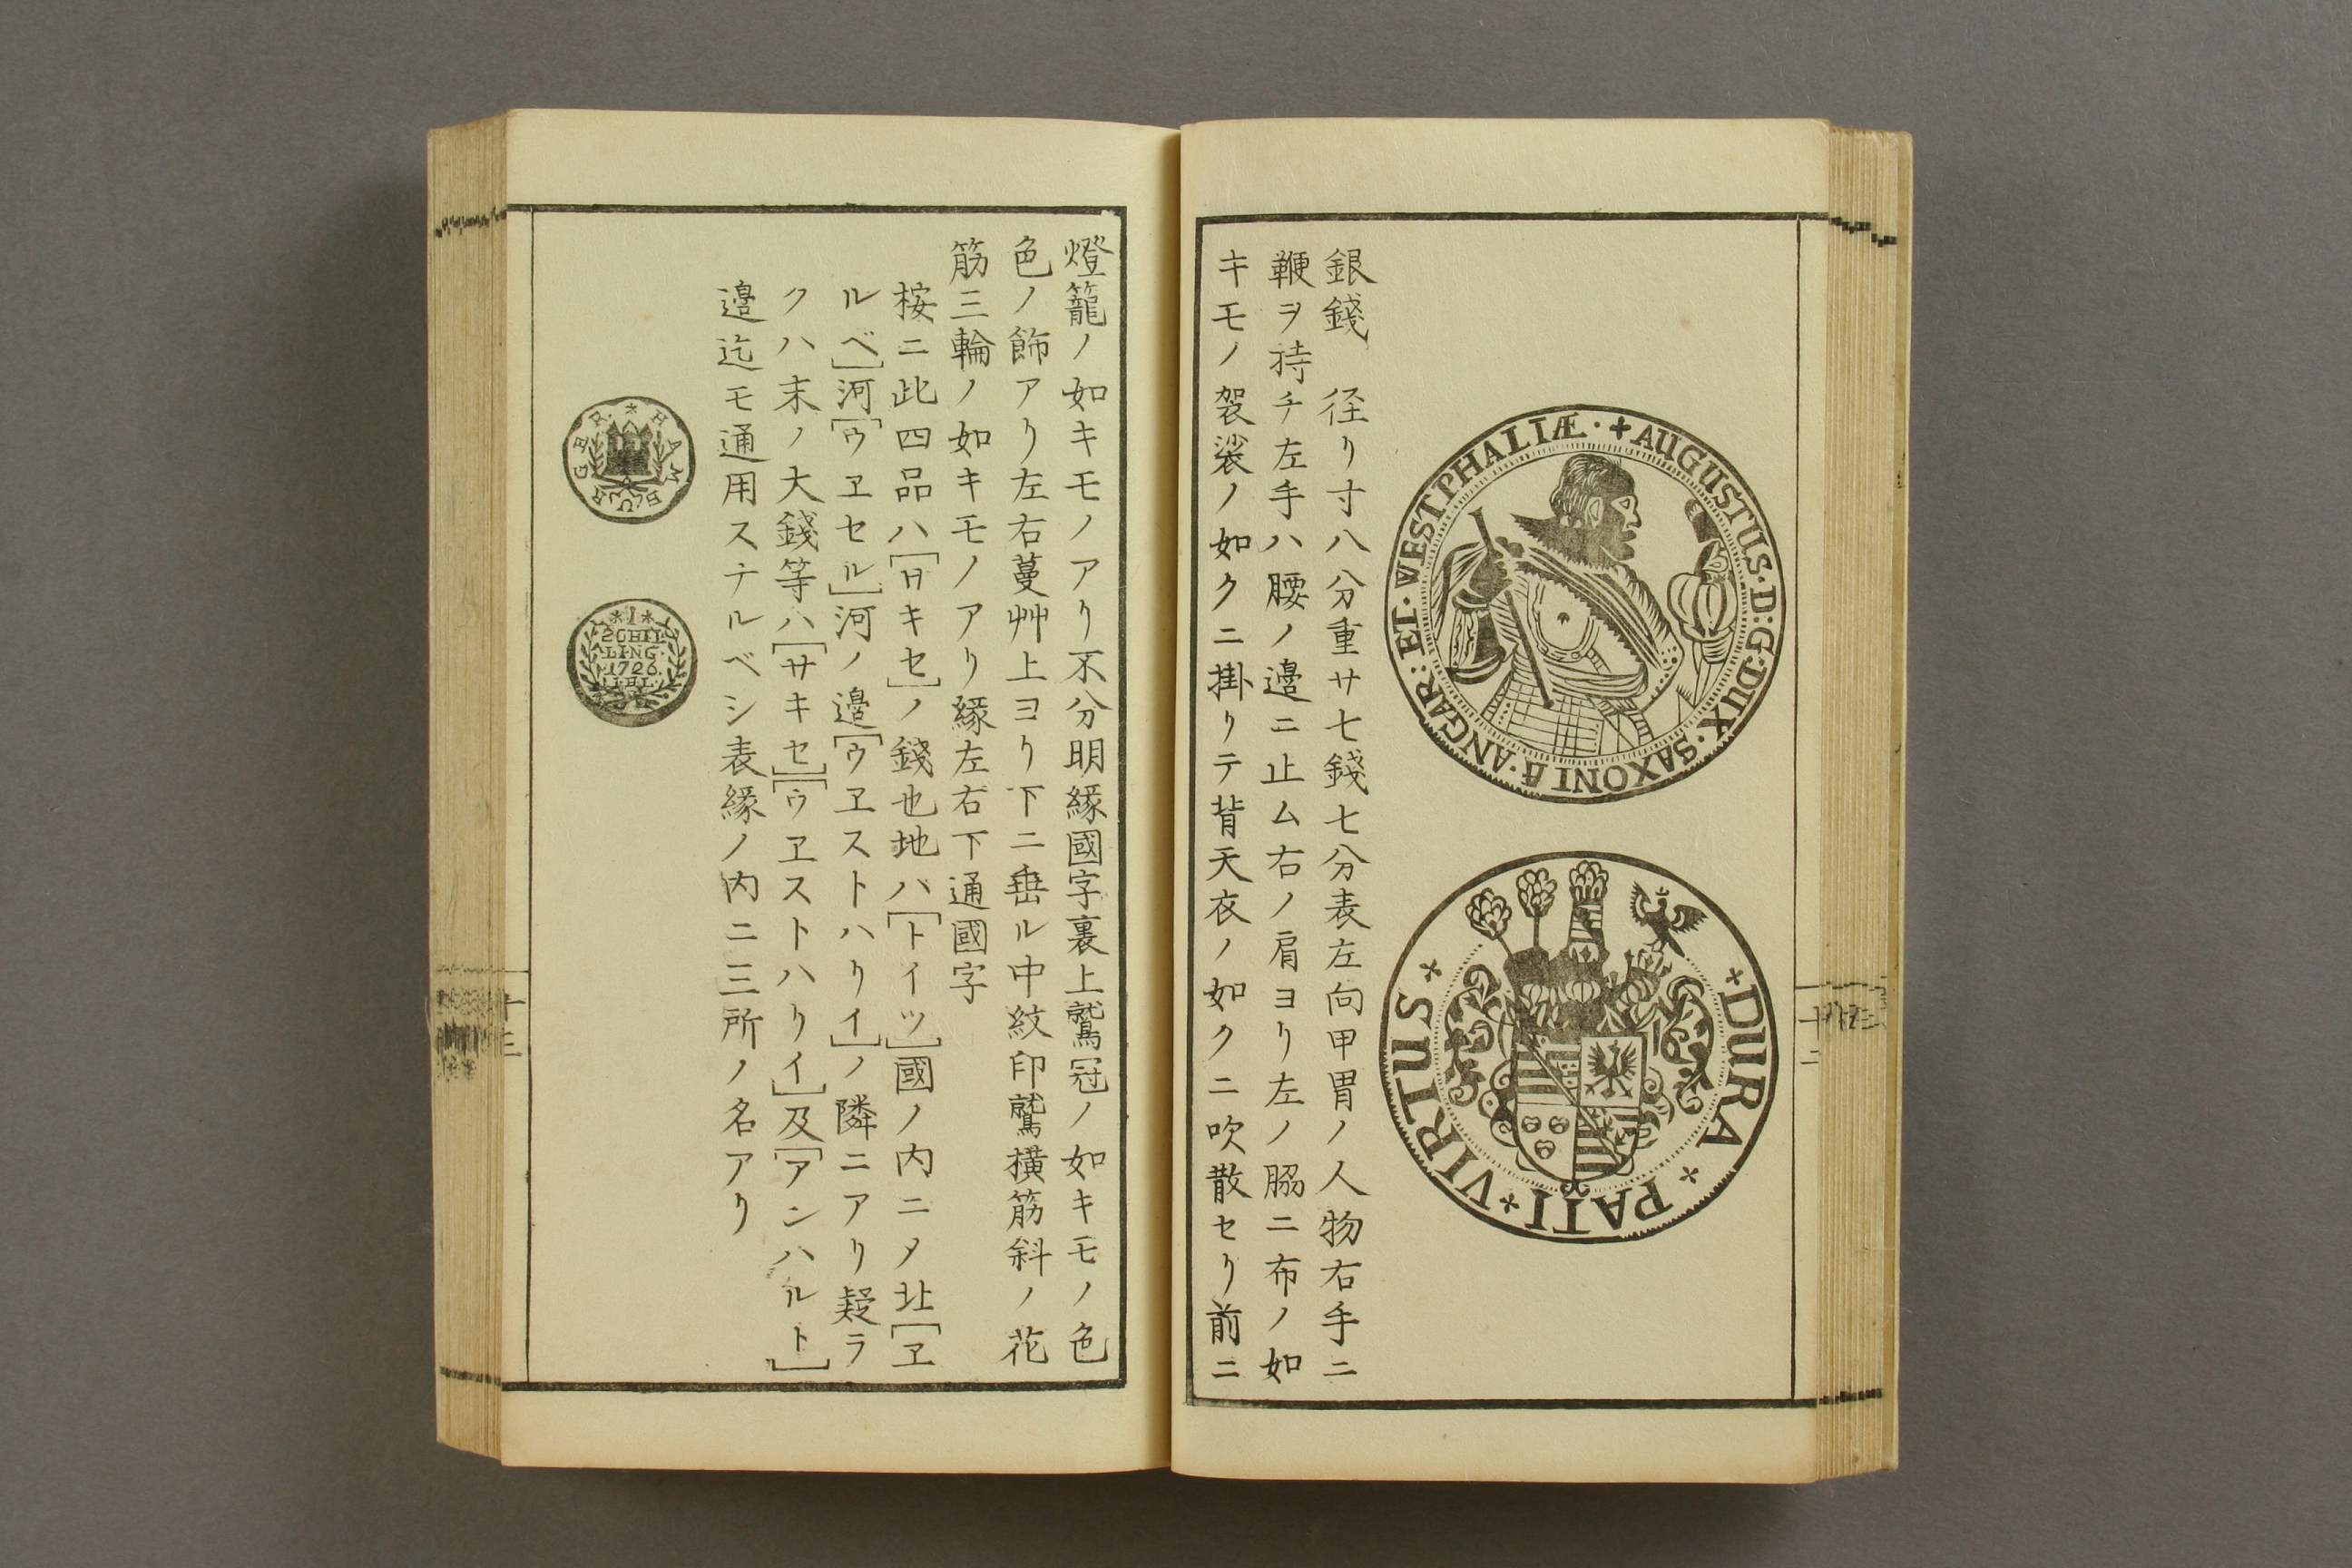 ✚AUGUSTUS·D:G·DUX·SAXONIÆ·ANGAR:ET·WESTPHALIÆ·
DURA × PATI × VIRTUS ×
銀錢　径リ寸八分重サ七錢七分表左向甲冑ノ人物右手ニ
鞭ヲ持チ左手ハ腰ノ邉ニ止ム右ノ肩ヨリ左ノ脇ニ布ノ如
キモノ袈裟ノ如クニ掛リテ背天衣ノ如クニ吹散セリ前ニ
十二
燈籠ノ如キモノアリ不分明縁國字裏上鷲冠ノ如キモノ色
色ノ飾アリ左右蔓艸上ヨリ下ニ垂ル中紋印鷲横筋斜ノ花
筋三輪ノ如キモノアリ縁左右下通國字
桉ニ此四品ハ[サキセ]ノ錢也地ハ[トイツ]國ノ内ニノ北[ヱ
ルベ]河[ウヱセル]河ノ邉[ウヱストハリイ]ノ隣ニアリ疑ラ
クハ末ノ大錢等ハ[サキセ][ウヱストハリイ]及[アンハルト]
邉迄モ通用スナルベシ表縁ノ内ニ三所ノ名アリ
*HAMBURGER·
*I*
SCHIL
LING·
1726
I.H.L.
十三